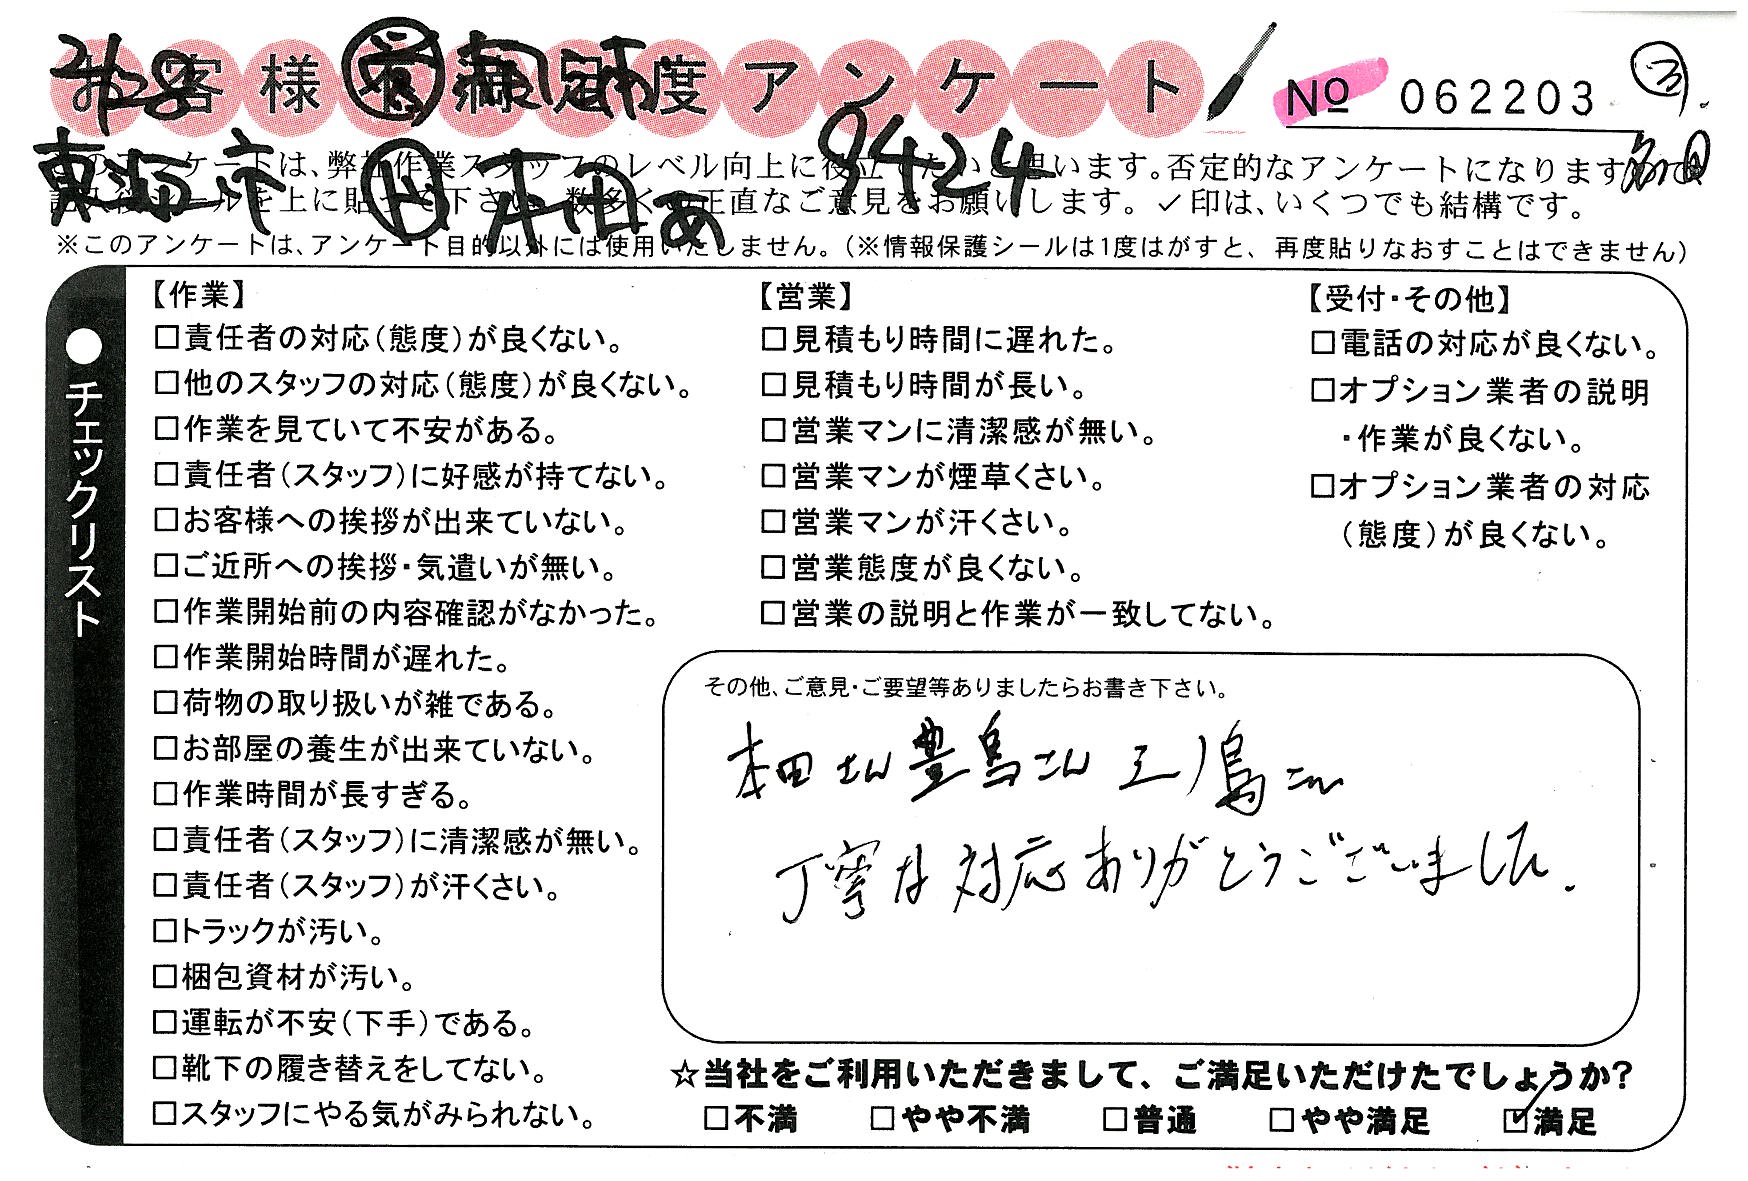 お客様不満足度アンケート
No 062203
2/28
東海市 本田 9424
このアンケートは、弊社作業スタッフのレベル向上に役立てたいと思います。否定的なアンケートになりますので
記入後シールを上に貼って下さい。数多くの正直なご意見をお願いします。✓印は、いくつでも結構です。
※このアンケートは、アンケート目的以外には使用いたしません。(※情報保護シールは1度はがすと、再度貼りなおすことはできません)
●チェックリスト
【作業】
□責任者の対応(態度)が良くない。
□他のスタッフの対応(態度)が良くない。
□作業を見ていて不安がある。
□責任者(スタッフ)に好感が持てない。
□お客様への挨拶が出来ていない。
□ご近所への挨拶・気遣いが無い。
□作業開始前の内容確認がなかった。
□作業開始時間が遅れた。
□荷物の取り扱いが雑である。
□お部屋の養生が出来ていない。
□作業時間が長すぎる。
□責任者(スタッフ)に清潔感が無い。
□責任者(スタッフ)が汗くさい。
□トラックが汚い。
□梱包資材が汚い。
□運転が不安(下手)である。
□靴下の履き替えをしてない。
□スタッフにやる気がみられない。
【営業】
□見積もり時間に遅れた。
□見積もり時間が長い。
□営業マンに清潔感が無い。
□営業マンが煙草くさい。
□営業マンが汗くさい。
□営業態度が良くない。
□営業の説明と作業が一致してない。
【受付・その他】
□電話の対応が良くない。
□オプション業者の説明
・作業が良くない。
□オプション業者の対応
(態度)が良くない。
その他、ご意見・ご要望等ありましたらお書き下さい。
本田さん 豊島さん 三ノ島さん
丁寧な対応ありがとうございました.
☆当社をご利用いただきまして、ご満足いただけたでしょうか?
□不満 □やや不満 □普通 □やや満足 ☑満足